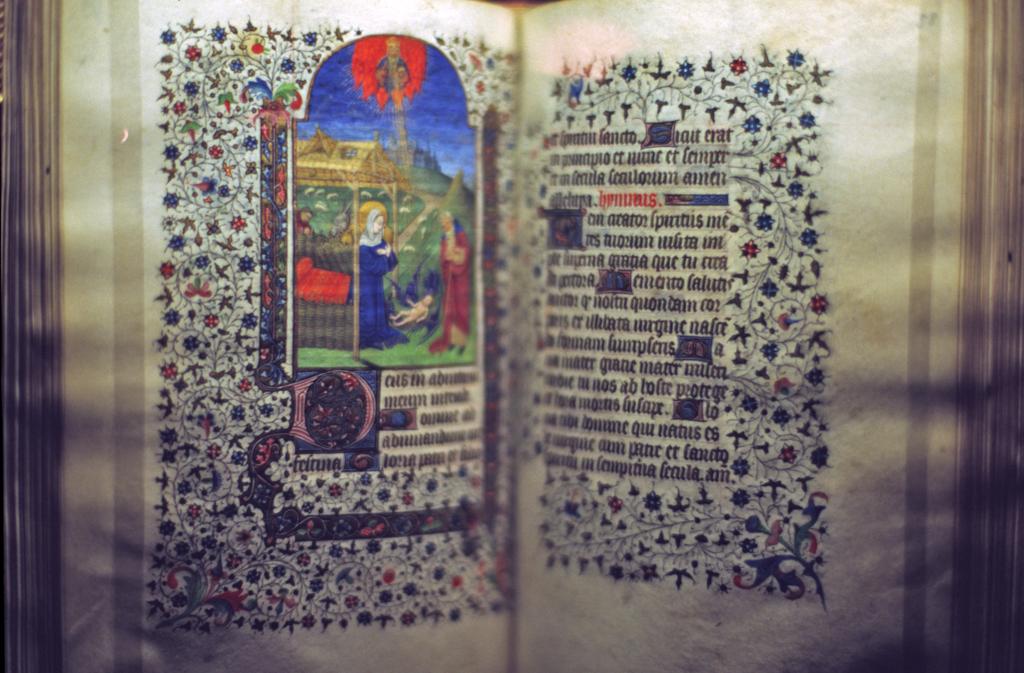 eus in adiuto
meum intende
Domine ad
adiuvandum
festina Gloria patri et
et spiritui sancto. Sicut erat
in principio et nunc et semper
et in secula seculorum amen
alleluya. hymnus.
Veni creator spiritus me
tes tuorum visita im
ple superna gratia que tu crea
sti pectora Memento salutis
auctor q̄ nostri quondam cor
poris ex illibata virgine nasce
do formam sumpseris Ma
ria mater gratie mater miseri
cordie tu nos ab hoste protege
et hora mortis suscipe. Glo
ria tibi domine qui natus es
de virgine cum patre et sancto
spiritu in sempiterna secula. am̄.